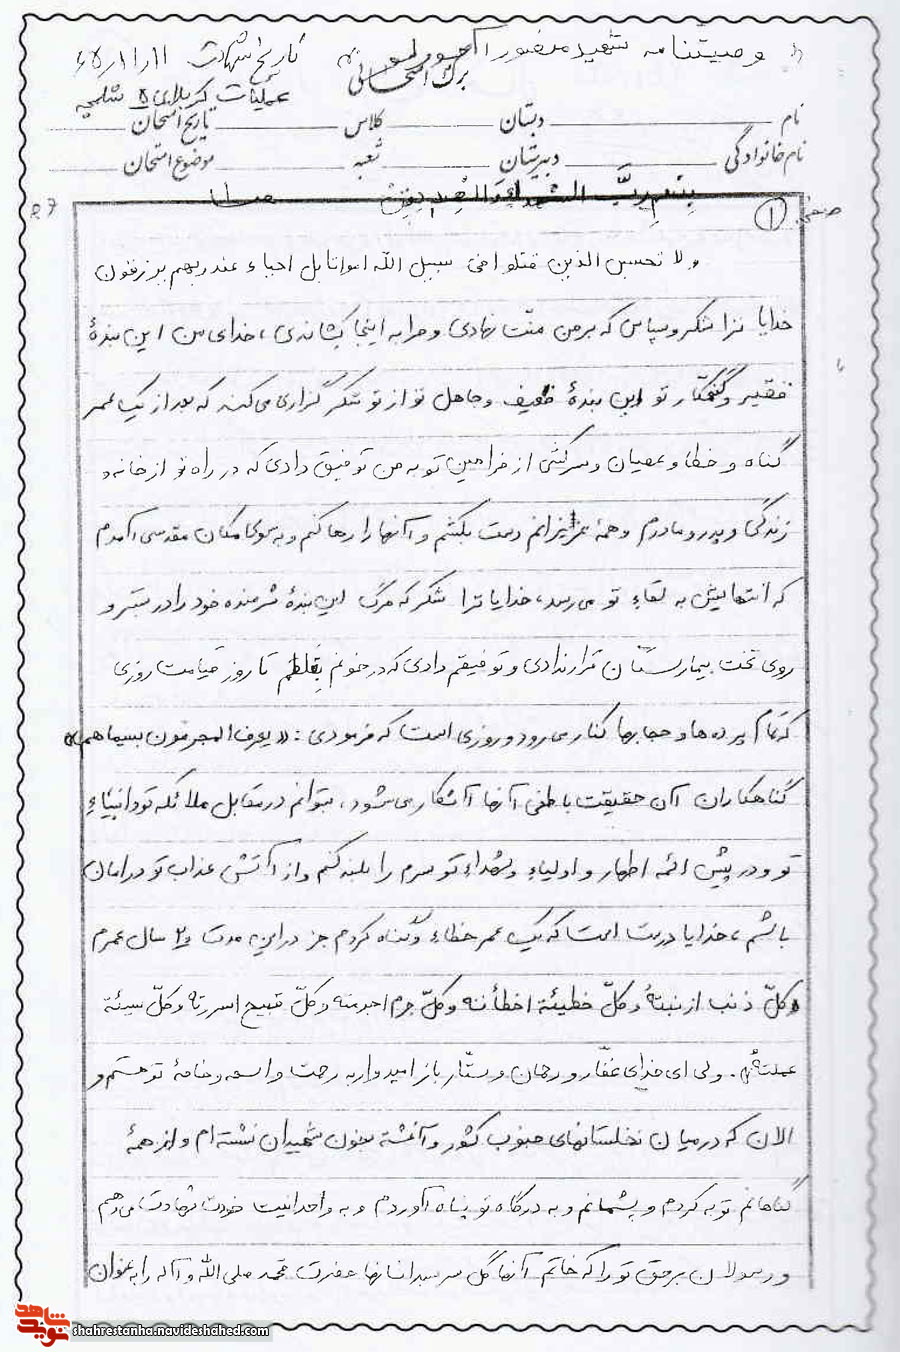 وصیتنامه شهید منصور
تاریخ شهادت ۶۵/۱۱/۱۱
برگ امتحانی
عملیات کربلای ۵ شلمچه
نام دبستان کلاس تاریخ امتحان
نام خانوادگی دبیرستان شعبه موضوع امتحان
بسم رب الشهداء و الصدیقین
صفحه ۱
ولا تحسبن الذین قتلوا فی سبیل الله امواتا بل احیاء عند ربهم یرزقون
خدایا ترا شکر و سپاس که بر من منّت نهادی و مرا به اینجا کشاندی، خدای من این بندهٔ
فقیر و گنهکار تو این بندهٔ ضعیف و جاهل تو از تو شکر گزاری می‌کند که بعد از یک عمر
گناه و خطا و عصیان و سرکشی از فرامین تو به من توفیق دادی که در راه تو از خانه و
زندگی و پدر و مادرم و همهٔ عزیزانم دست بکشم و آنها را رها کنم و به سوی مکان مقدسی آمدم
که انتهایش به لقاء تو می‌رسد، خدایا ترا شکر که مرگ این بندهٔ شرمنده خود را در بستر و
روی تخت بیمارستان قرار ندادی و توفیقم دادی که در خونم بغلطم تا روز قیامت روزی
که تمام پرده‌ها و حجابها کنار می‌رود و روزی است که فرمودی: «یعرف المجرمون بسیماهم»
گناهکاران آن حقیقت باطنی آنها آشکار می‌شود، بتوانم در مقابل ملائکه تو و انبیاء
تو و در پیش ائمه اطهار و اولیاء و شهداء تو سرم را بلند کنم و از آتش عذاب تو در امان
باشم، خدایا درست است که یک عمر خطاء و گناه کردم جز در این مدت سال عمرم
«کلّ ذنب اذنبتهٔ و کلّ خطیئة اخطأته و کلّ جرم اجرمته و کلّ قبیح اسررته و کلّ سیئة
عملتهٔا». ولی ای خدای غفّار و رحمان و ستّار باز امیدوار به رحمت واسعه و خانهٔ تو هستم و
الان که در میان نخلستانهای جنوب کشور و آغشته بخون شهیدان نشسته‌ام و از همهٔ
گناهانم توبه کردم و پشیمانم و به درگاه تو پناه آوردم و به واحدانیت خودت شهادت می‌دهم
و رسولان برحق تو را که خاتم آنها گل سرسبد انسانها حضرت محمد صلی الله و آله را به عنوان
شاهد نوید
shahrestanha.navideshahed.com